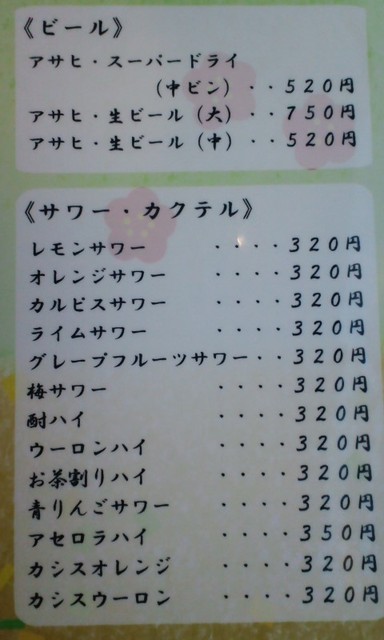 《ビール》
アサヒ・スーパードライ
(中ビン)・・520円
アサヒ・生ビール(大)・・750円
アサヒ・生ビール(中)・・520円
《サワー・カクテル》
レモンサワー ・・・・320円
オレンジサワー ・・・・320円
カルピスサワー ・・・・320円
ライムサワー ・・・・320円
グレープフルーツサワー・・320円
梅サワー ・・・・320円
酎ハイ ・・・・320円
ウーロンハイ ・・・・320円
お茶割りハイ ・・・・320円
青りんごサワー ・・・・320円
アセロラハイ ・・・・350円
カシスオレンジ ・・・・320円
カシスウーロン ・・・・320円